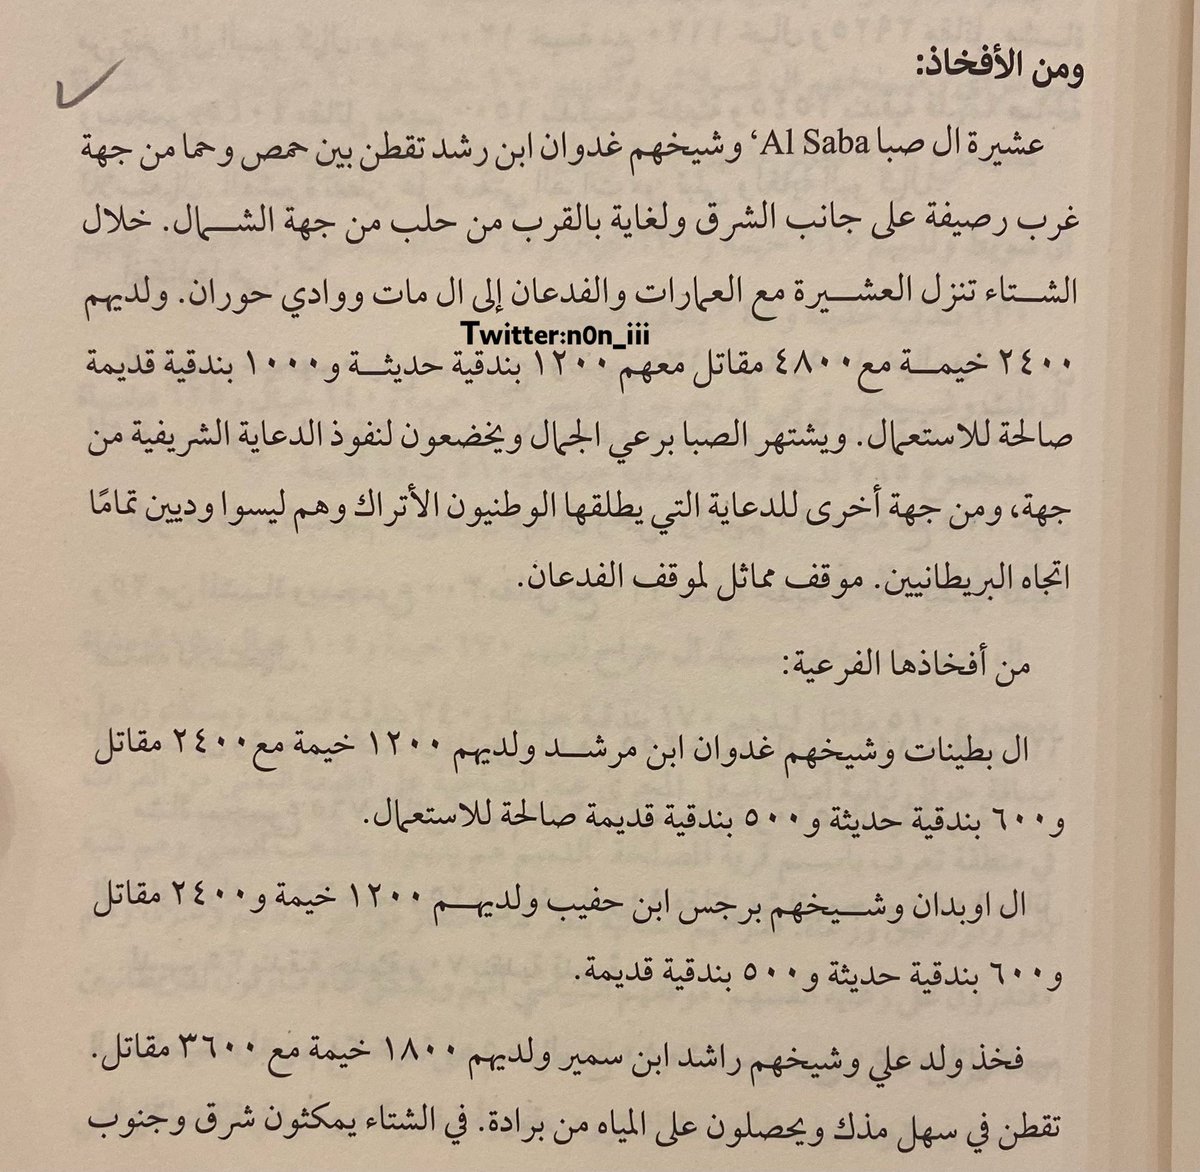 ومن الأفخاذ:
عشيرة ال صبا Al Saba‘ وشيخهم غدوان ابن رشد تقطن بين حمص وحما من جهة
غرب رصيفة على جانب الشرق ولغاية بالقرب من حلب من جهة الشمال. خلال
الشتاء تنزل العشيرة مع العمارات والفدعان إلى ال مات ووادي حوران. ولديهم
Twitter:n0n_iii
٢٤٠٠ خيمة مع ٤٨٠٠ مقاتل معهم ١٢٠٠ بندقية حديثة و١٠٠٠ بندقية قديمة
صالحة للاستعمال. ويشتهر الصبا برعي الجمال ويخضعون لنفوذ الدعاية الشريفية من
جهة، ومن جهة أخرى للدعاية التي يطلقها الوطنيون الأتراك وهم ليسوا وديين تمامًا
اتجاه البريطانيين. موقف مماثل لموقف الفدعان.
من أفخاذها الفرعية:
ال بطينات وشيخهم غدوان ابن مرشد ولديهم ١٢٠٠ خيمة مع ٢٤٠٠ مقاتل
و٦٠٠ بندقية حديثة و٥٠٠ بندقية قديمة صالحة للاستعمال.
ال اوبدان وشيخهم برجس ابن حفيب ولديهم ١٢٠٠ خيمة و٢٤٠٠ مقاتل
و٦٠٠ بندقية حديثة و٥٠٠ بندقية قديمة.
فخذ ولد علي وشيخهم راشد ابن سمير ولديهم ١٨٠٠ خيمة مع ٣٦٠٠ مقاتل.
تقطن في سهل مذك ويحصلون على المياه من برادة. في الشتاء يمكثون شرق وجنوب